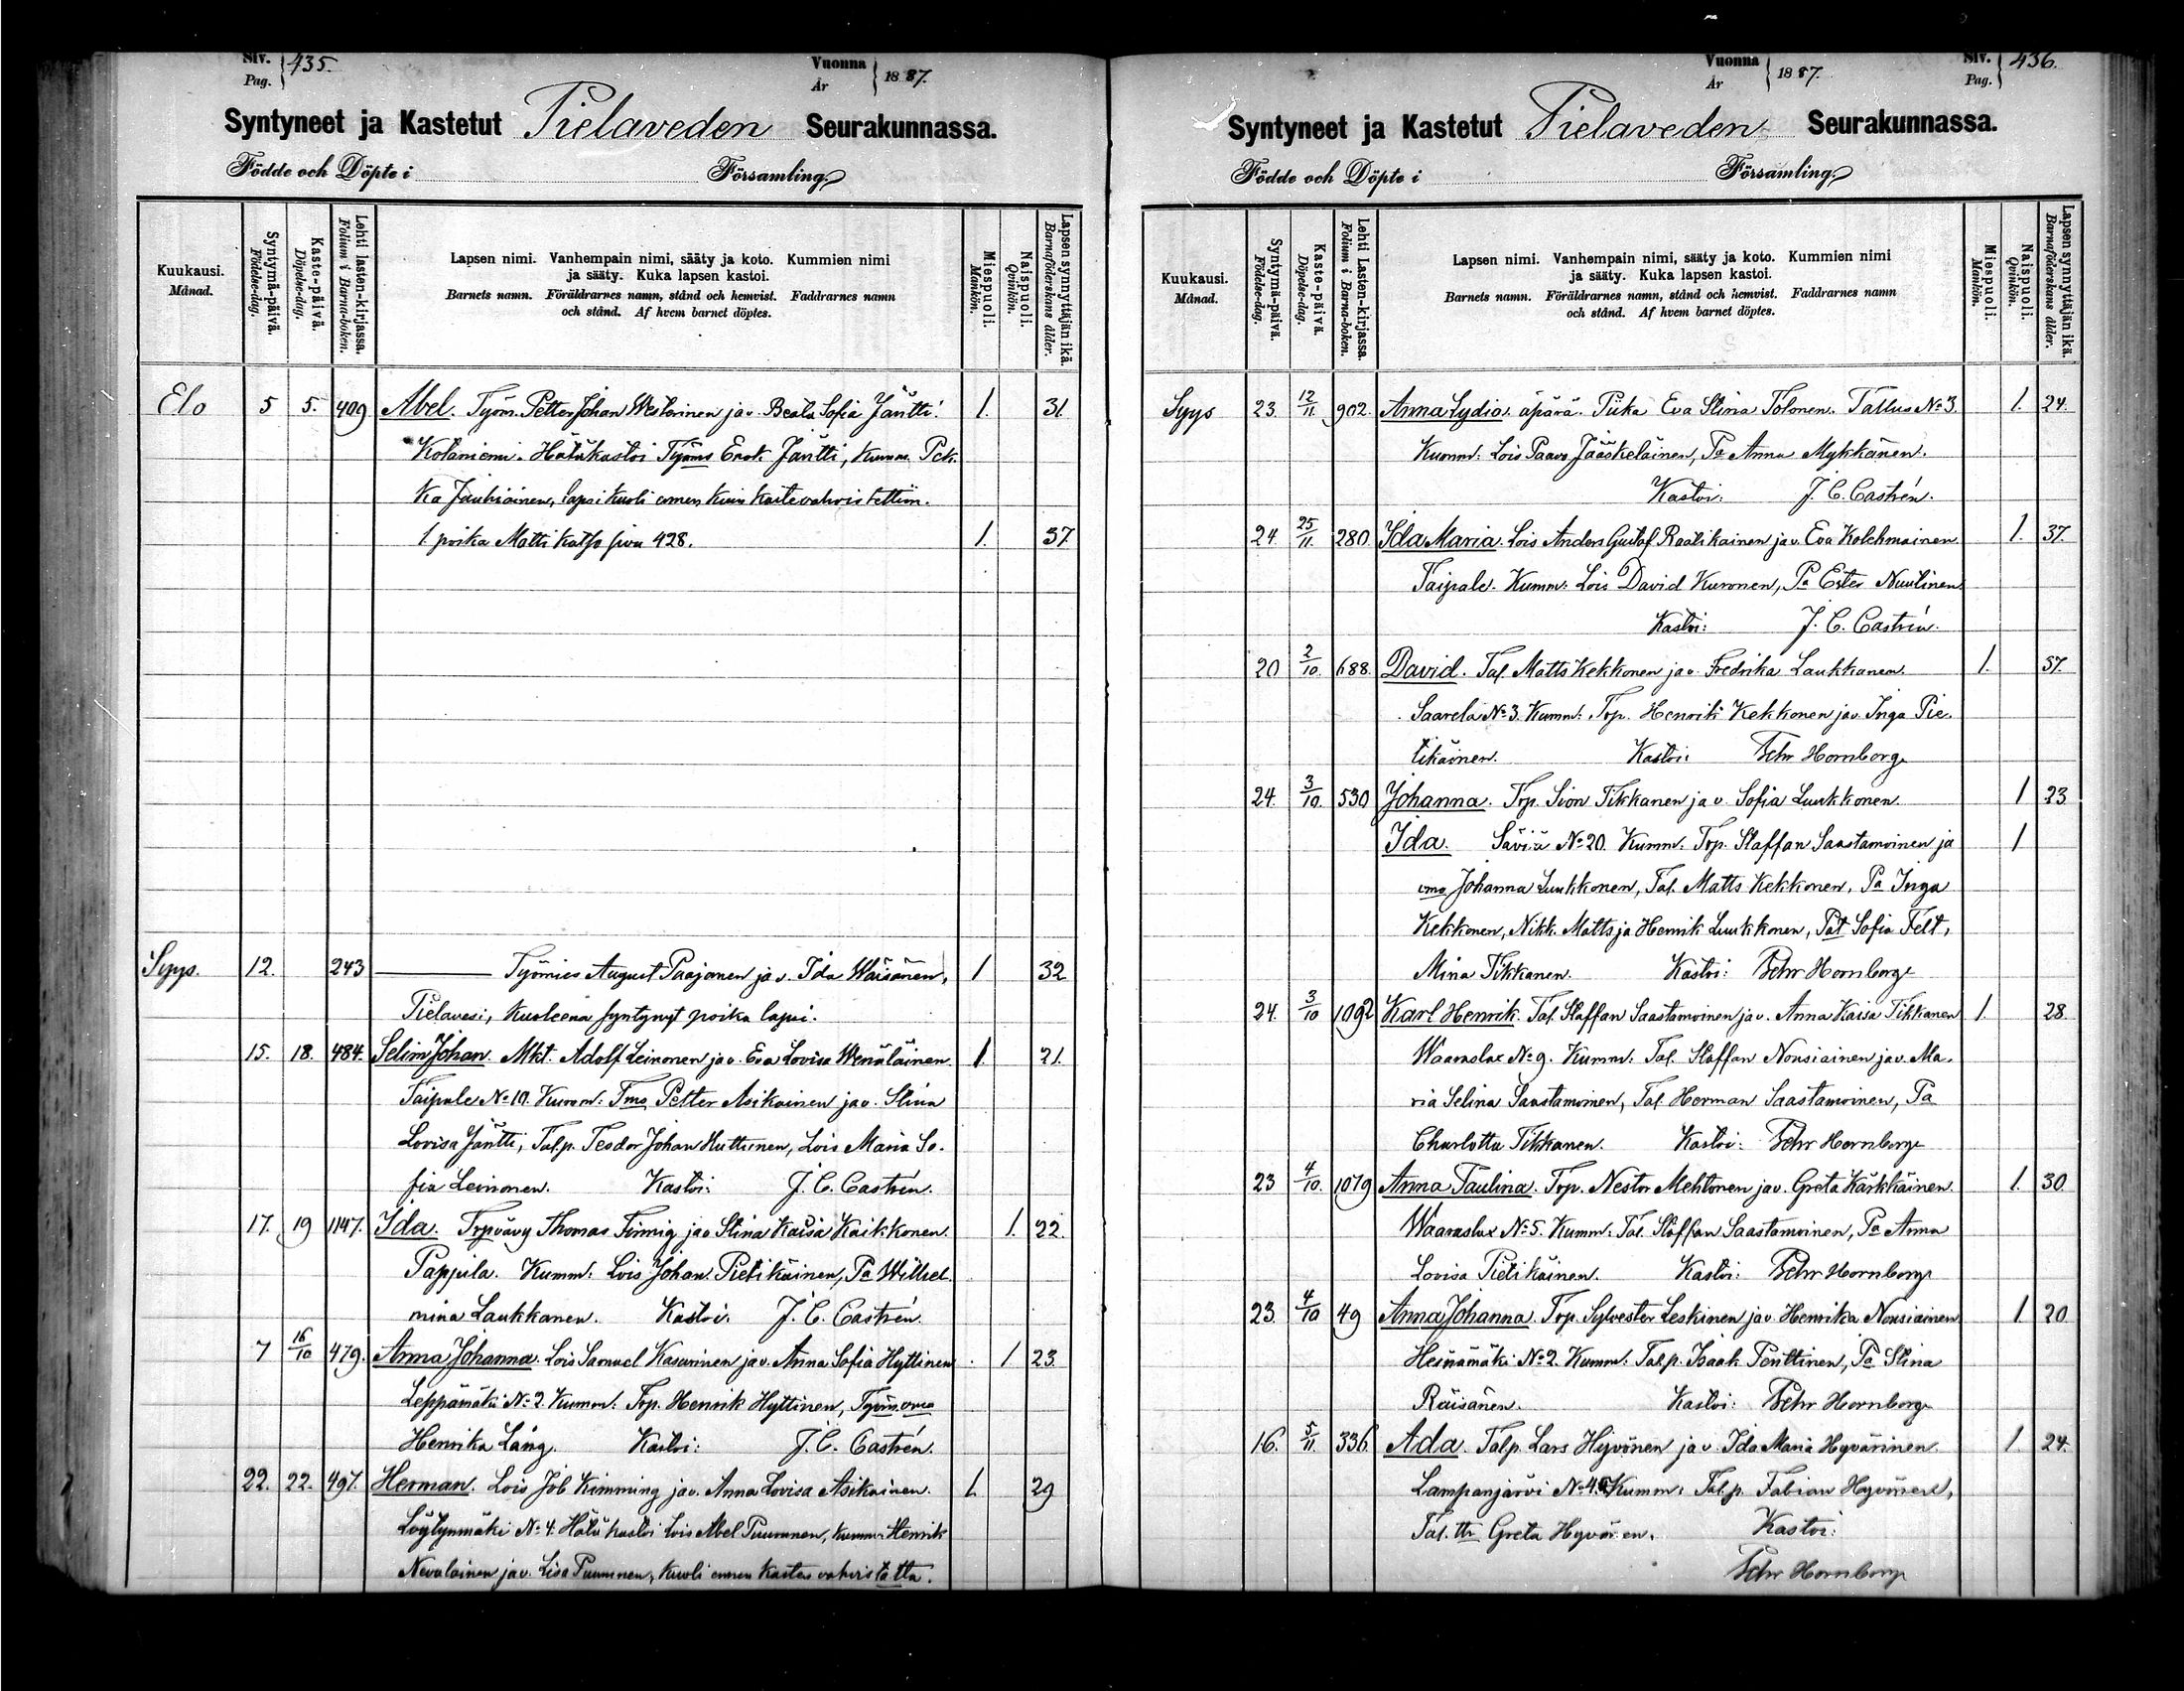 Siv. Pag. 435.
Vuonna År 1887.
Syntyneet ja Kastetut Pielaveden Seurakunnassa.
Födde och Döpte i Församling.
Kuukausi. Månad.
Syntymä-päivä. Födelse-dag.
Kaste-päivä. Döpelse-dag.
Lehti lasten-kirjassa. Folium i Barna-boken.
Lapsen nimi. Vanhempain nimi, sääty ja koto. Kummien nimi
ja sääty. Kuka lapsen kastoi.
Barnets namn. Föräldrarnes namn, stånd och hemvist. Faddrarnes namn
och stånd. Af hvem barnet döptes.
Miespuoli. Mankön.
Naispuoli. Qvinkön.
Lapsen synnyttäjän ikä. Barnaföderskans ålder.
Elo 5 5. 409 Abel. Työm. Petter Johan Westerinen ja v. Beata Sofia Jäntti. 1. 31.
Kolaniemi. Hätäkastoi Erik Jäntti, Kumm. Pek.
ka Jauhiainen, lapsi kuoli ennen kuin kaste vahvistettiin.
1 poika Matti katso sivu 428. 1. 37.
Syys. 12. 243 Työmies August Paajanen ja v. Ida Wäisänen, 1 32
Pielavesi, Kuoleena syntynyt poika lapsi.
15. 18. 484. Selim Johan. Mkt. Adolf Leinonen ja v. Eva Lovisa Wenäläinen. 1. 21.
Taipale No 10. Kumm: Tms Petter Asikainen ja v. Stina
Lovisa Jäntti, Tal.p. Teodor Johan Huttunen, Lois Maria So-
fia Leinonen. Kastoi: J. C. Castrén.
17. 19 1147. Ida. Trpvävy Thomas Finnig ja v Stina Kaisa Kaikkonen. 1. 22.
Pappila. Kumm: Lois Johan Pietikäinen, Pa Wilhel-
mina Laukkanen. Kastoi: J. C. Castrén
7 16/10 479. Anna Johanna. Lois Samuel Kasurinen ja v. Anna Sofia Hyttinen 1 23.
Leppämäki No 2. Kumm: Trp. Henrik Hyttinen,
Henrika Lång. Kastoi: J. C. Castrén.
22. 22. 497. Herman. Lois Job Kimming ja v. Anna Lovisa Asikainen. 1. 29
Löytynmäki No 4. Hätä kastoi Lois Abel Puumnen, Kumm: Henrik
Nevalainen ja v. Lisa Puumnen, Kuoli ennen Kasteen vahvistatta.
Vuonna År 1887.
Siv. Pag. 436.
Syntyneet ja Kastetut Pielaveden Seurakunnassa.
Födde och Döpte i Församling.
Kuukausi. Månad.
Syntymä-päivä. Födelse-dag.
Kaste-päivä. Döpelse-dag.
Lehti Lasten-kirjassa. Folium i Barna-boken.
Lapsen nimi. Vanhempain nimi, sääty ja koto. Kummien nimi
ja sääty. Kuka lapsen kastoi.
Barnets namn. Föräldrarnes namn, stånd och hemvist. Faddrarnes namn
och stånd. Af hvem barnet döptes.
Miespuoli. Mankön.
Naispuoli. Qvinkön.
Lapsen synnyttäjän ikä. Barnaföderskans ålder.
Syys 23. 12/11 902. Anna Lydia. äpärä. Piika Eva Stina Tolonen. Tallus No 3. 1. 24.
Kumm: Lois Paavo Jääskeläinen, Pa Anna Mykkänen.
Kastoi: J. C. Castrén.
24. 25/11. 280. Ida Maria. Lois Anders Gustaf Raatikainen ja v. Eva Kolehmainen. 1. 37.
Taipale. Kumm: Lois David Kuronen, Pa Ester Nuutinen
Kastoi: J. C. Castrén.
20 2/10. 688. David. Tal. Matts Kekkonen ja v. Fredrika Laukkanen. 1. 37.
Saarela No 3. Kumm: Trp. Henrik Kekkonen ja v. Inga Pie-
tikäinen. Kastoi: Fehr Hornborg.
24. 3/10. 530 Johanna. Trp. Sion Tikkanen ja v. Sofia Luukkonen. 1 23
Ida. Säviä No 20. Kumm: Trp. Staffan Saastamoinen ja 1
Johanna Luukkonen, Tal. Matts Kekkonen, Pa Inga
Kekkonen, Nikk. Matts ja Henrik Luukkonen, Pat Sofia Felt,
Mina Tikkanen. Kastoi: Fehr Hornborg
24. 3/10 1092 Karl Henrik. Tal. Staffan Saastamoinen ja v. Anna Kaisa Tikkanen 1. 28.
Waaraslax No 9. Kumm: Tal. Staffan Nousiainen ja v. Ma-
ria Selina Saastamoinen, Tal. Herman Saastamoinen, Pa
Charlotta Tikkanen. Kastoi: Fehr Hornborg
23 4/10. 1079 Anna Paulina. Trp. Nestor Mehtonen ja v. Greta Kärkkäinen. 1. 30.
Waaraslax No 5. Kumm: Tal. Staffan Saastamoinen, Pa Anna
Lovisa Pietikäinen. Kastoi: Fehr Hornborg
23. 4/10 49 Anna Johanna. Trp. Sylvester Leskinen ja v. Henrika Nousiainen 1 20
Heinämäki No 2. Kumm: Tal.p. Isaak Ponttinen, Pa Stina
Räisänen. Kastoi: Fehr Hornborg
16. 5/11. 336. Ada. Talp. Lars Hyvönen ja v. Ida Maria Hyvärinen. 1. 24.
Lampanjärvi No 4. Kumm: Tal.p. Fabian Hyvönen,
Tal. ttr Greta Hyvönen. Kastoi:
Fehr Hornborg